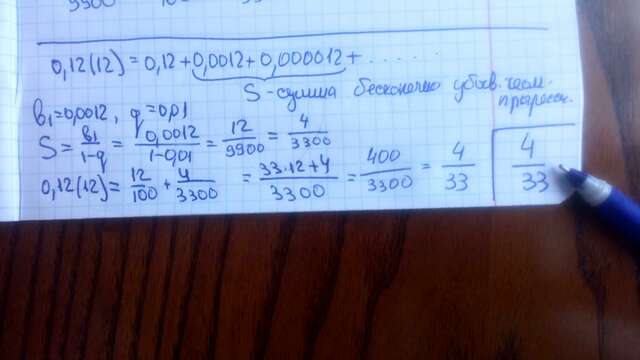 0,12(12) = 0,12 + 0,0012 + 0,000012 + ......
S - сумма бесконечно убыв. геом. прогресс.
b₁ = 0,0012, q = 0,01
S = b₁/(1-q) = 0,0012/(1-0,01) = 12/9900 = 4/3300
0,12(12) = 12/100 + 4/3300 = (33·12+4)/3300 = 400/3300 = 4/33
4/33